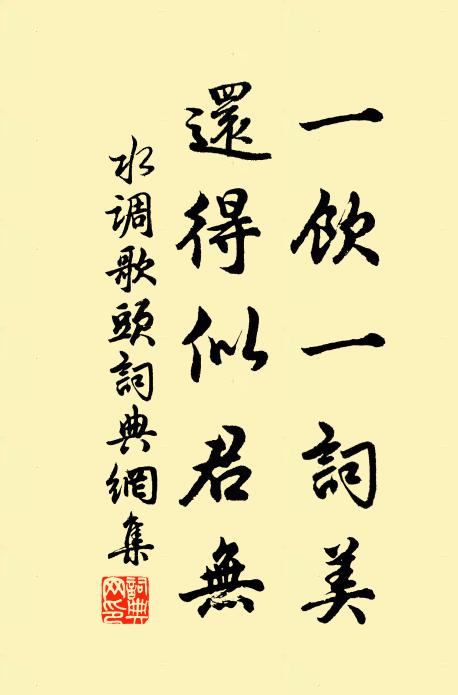 一飲一詞美
還得似君無
水调歌頭詞典網集
詞典
网印